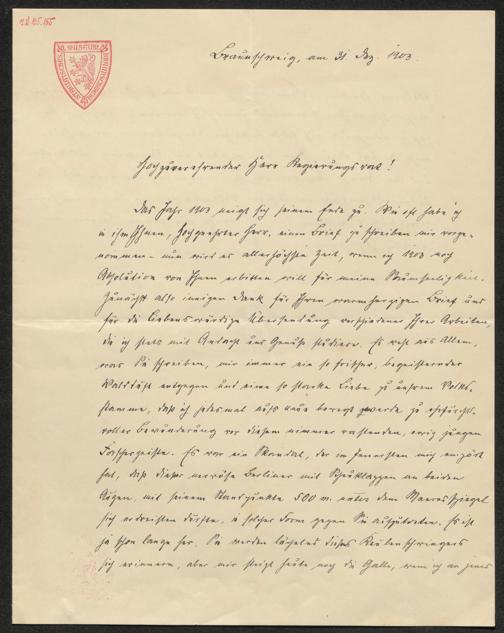 Braunschweig, am 31. Dez. 1903.
Hochzuverehrender Herr Regierungsrat!
Das Jahr 1903 neigt sich seinem Ende zu. Wie oft habe ich
in ihm Ihnen, hochgeehrter Herr, einen Brief zu schreiben mir vorge-
nommen – nun wird es allerhöchste Zeit, wenn ich 1903 noch
Absolution von Ihnen erbitten will für meine Saumseligkeit.
Zunächst also innigen Dank für Ihren warmherzigen Brief und
für die liebenswürdige Übersendung verschiedener Ihrer Arbeiten,
die ich stets mit Andacht und Genuß studiere. Es weht aus Allem,
was Sie schreiben, mir immer ein so frischer, begeisternder
Waldduft entgegen und eine so starke Liebe zu unserem Volks-
stamme, daß ich jedesmal aufs neue bewegt werde zu ehrfurchts-
voller Bewunderung vor diesem nimmer rastenden, ewig jungen
Forschergeiste. Es war ein Skandal, der im Innersten mich empört
hat, daß dieser nervöse Berliner mit Scheuklappen an beiden
Augen, mit seinem Standpunkte 500 m. unter dem Meeresspiegel
sich erdreisten durfte, in solcher Form gegen Sie aufzutreten. Es ist
ja schon lange her, Sie werden lächelnd dieses Keulenschwingers
sich erinnern, aber mir steigt heute noch die Galle, wenn ich an jenes